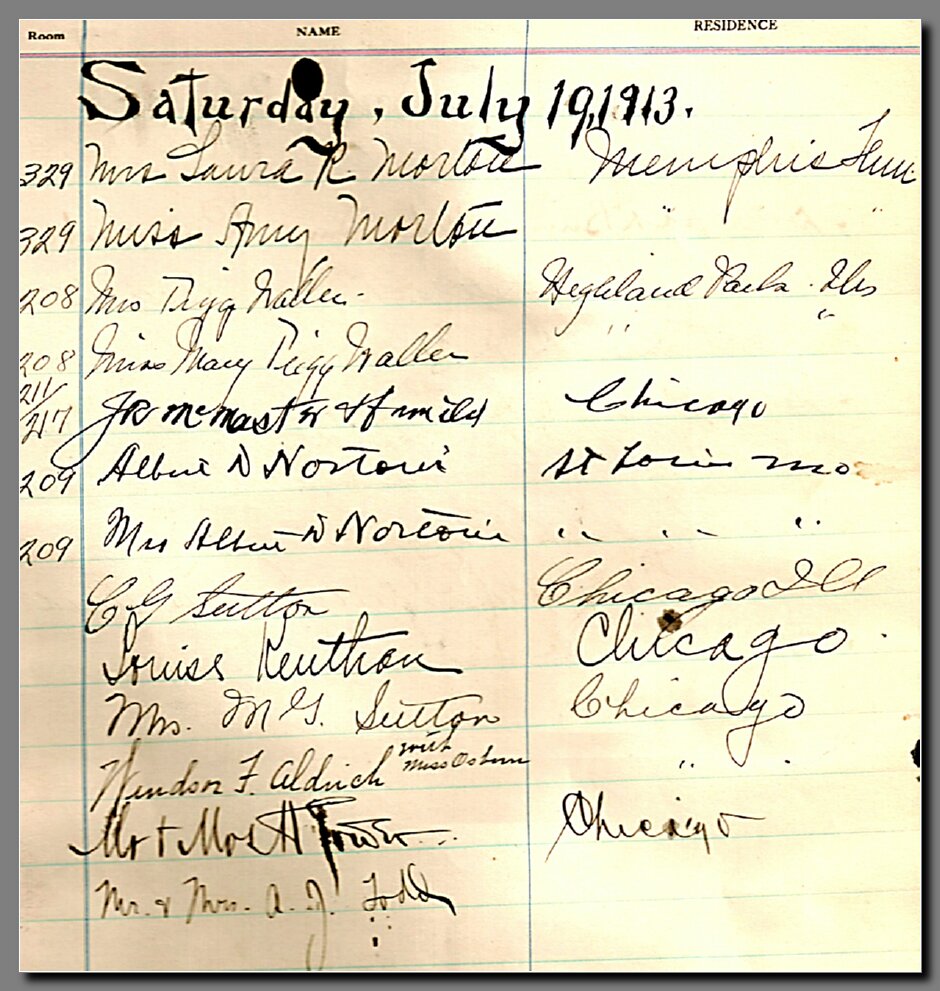 Room NAME RESIDENCE
Saturday, July 19, 1913.
329 Mrs Laura R Morton Memphis Tenn
329 Miss Amy Morton " "
208 Mrs Tigg Waller. Highland Park. Ills
208 Miss Mary Tigg Waller " "
211/217 JR McMaster & family Chicago
209 Albert D Nortoni St Louis Mo
209 Mrs Albert D Nortoni " " "
C G Sutton Chicago Ill
Louise Chicago.
Mrs. M G. Sutton Chicago
Windsor F. Aldrich with Miss Osborn " "
Mr & Mrs H Tower Chicago
Mr. & Mrs. A. J. Todd